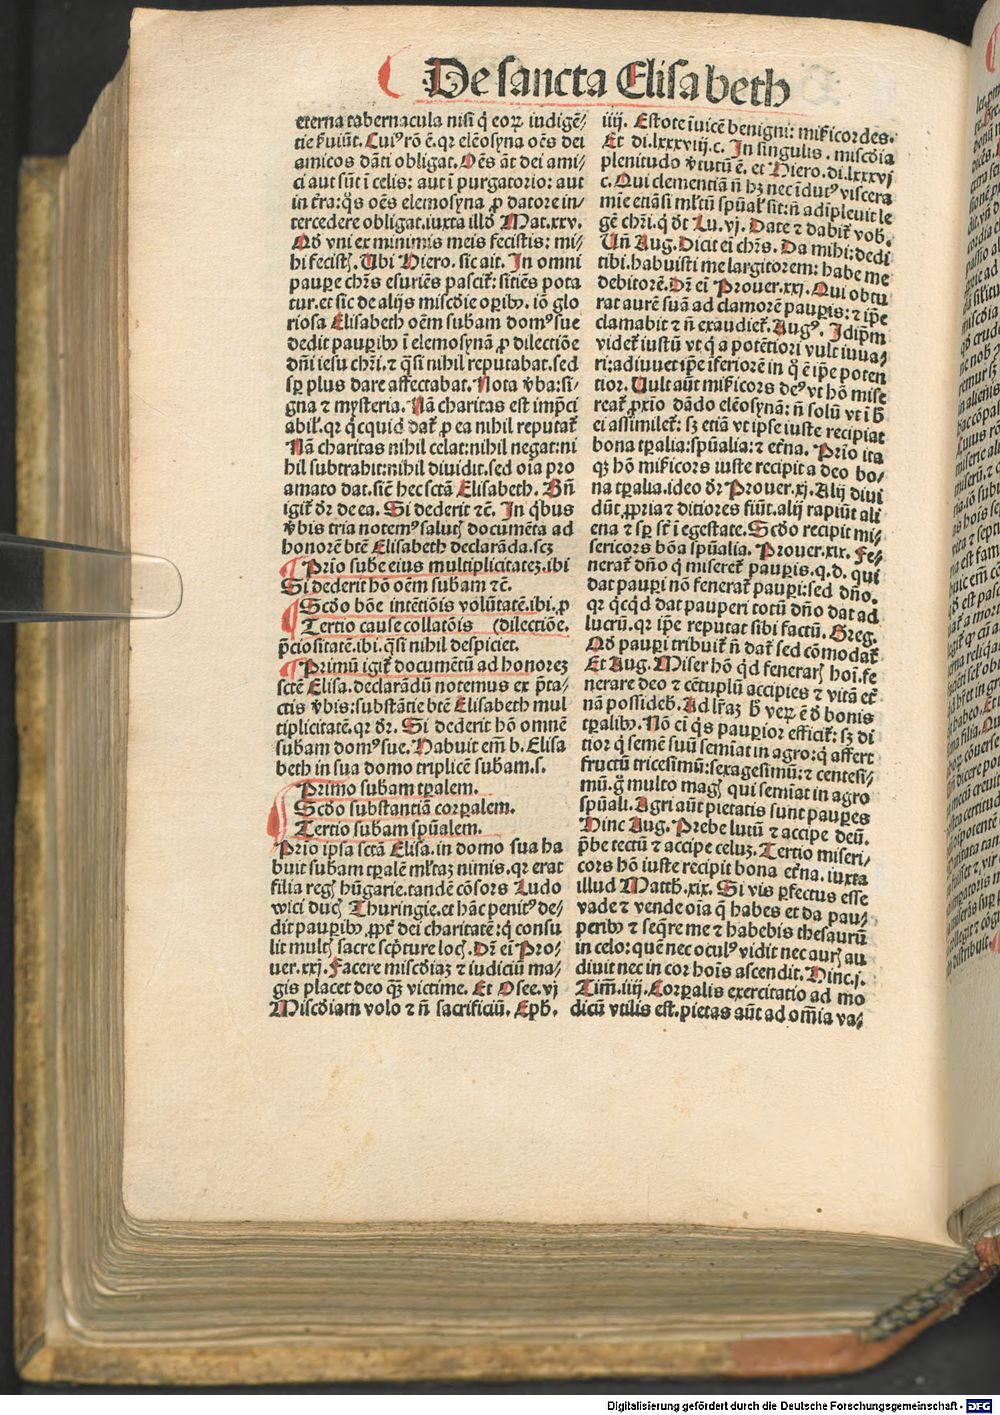 De sancta Elisabeth
eterna tabernacula nisi q̇ eoꝝ indigē⸗
tie ẜuiūt. Cuiꝰ rō ē. qꝛ elēosyna oēs dei
amicos dāti obligat. Oēs āt dei ami⸗
ci aut sūt ī celis: aut ī purgatorio: aut
in tr̄a: q̇s oēs elemosyna ꝓ datore in⸗
tercedere obligat. iuxta illđ Mat. xxv.
Qđ vni ex minimis meis fecistis: mi⸗
hi fecistꝭ. Ubi Hiero. sic ait. In omni
paupe chr̄s esuriēs pascit᷑: sitiēs pota
tur. et sic de alijs miscđie oꝑibꝰ. iō glo
riosa Elisabeth oēm subam domꝰ sue
dedit pauꝑibꝰ ī elemosynā ꝓ dilectiōe
dn̄i iesu chr̄i. ⁊ q̇si nihil reputabat. sed
sꝑ plus dare affectabat. Nota v̄ba: si⸗
gna ⁊ mysteria. Nā charitas est imp̄ci
abil᷑. qꝛ q̇cquid dat᷑ ꝓ ea nihil reputat᷑
Nā charitas nihil celat: nihil negat: ni
hil subtrahit: nihil diuidit. sed oīa pro
amato dat. sic̄ hec sctā Elisabeth. Bn̄
igit᷑ dr̄ de ea. Si dederit ⁊c̄. In q̇bus
v̄bis tria notemꝰ salutꝭ documēta ad
honorē btē Elisabeth declarāda. scꝫ
Prīo sube eius multiplicitateꝫ. ibi
Si dederit hō oēm subam ⁊c̄.
Scđo bōe intētiōis volūtatē. ibi. ꝓ
Tertio cause collatōis (dilectiōe.
p̄ciositatē. ibi. q̇si nihil despiciet.
Primū igit᷑ documētū ad honoreꝫ
sctē Elisa. declarādū notemus ex p̄ta⸗
ctis v̄bis: substātie btē Elisabeth mul
tiplicitatē. qꝛ dr̄. Si dederit hō omnē
subam domꝰ sue. Habuit em̄ b. Elisa
beth in sua domo triplicē subam. s.
Primo subam tꝑalem.
Scđo substantiā corꝑalem.
Tertio subam spūalem.
Prīo ipsa sctā Elisa. in domo sua ha
buit subam tꝑalē ml̄taꝫ nimis. qꝛ erat
filia regꝭ hūgarie. tandē cōsors Ludo
wici ducꝭ Thuringie. et hāc penitꝰ de⸗
dit pauꝑibꝰ ꝓpt᷑ dei charitatē: q̇ consu
lit multꝭ sacre scp̄ture locꝭ. Dr̄ ei Pro⸗
uer. xxj. Facere miscđiaꝫ ⁊ iudiciū ma⸗
gis placet deo qꝫ̄ victime. Et Osee. vj
Miscđiam volo ⁊ n̄ sacrificiū. Eph.
iiij. Estote īuicē benigni: mi᷑icordes.
Et di. lxxxviij. c. In singulis. miscđia
plenitudo v̄tutū ē. et Hiero. di. lxxxvj
c. Qui clementiā n̄ hꝫ nec īdutꝰ viscera
mie etiāsi ml̄tū spūal᷑ sit: n̄ adīpleuit le
gē chr̄i. q̇ dt̄ Lu. vj. Date ⁊ dabit᷑ vob.
Un̄ Aug. Dicit ei chr̄s. Da mihi: dedi
tibi. habuisti me largitorem: habe me
debitorē. Dr̄ ei Prouer. xxj. Qui obtu
rat aurē suā ad clamorē pauꝑis: ⁊ ip̄e
clamabit ⁊ n̄ exaudiet᷑. Augꝰ. Idip̄m
videt᷑ iustū vt q̇ a potētiori vult iuua⸗
ri: adiuuet ip̄e īferiorē in q̊ ē ip̄e poten
tior. Uult aūt mi᷑icors deꝰ vt hō mise
reat᷑ ꝓxīo dādo elēosynā: n̄ solū vt ī h̄
ei assimilet᷑: sꝫ etiā vt ipse iuste recipiat
bona tꝑalia: spūalia: ⁊ et᷑na. Prīo ita
qꝫ hō mi᷑icors iuste recipit a deo bo⸗
na tꝑalia. ideo dr̄ Prouer. xj. Alij diui
dūt ꝓpria ⁊ ditiores fiūt. alij rapiūt ali
ena ⁊ sꝑ st̄ ī egestate. Scđo recipit mi⸗
sericors bōa spūalia. Prouer. xix. Fe⸗
nerat᷑ dn̄o q̇ miseret᷑ pauꝑis. q. d. qui
dat pauꝑi nō fenerat᷑ pauꝑi: sed dn̄o.
qꝛ q̇cq̇d dat pauperi totū dn̄o dat ad
lucrū. qꝛ ip̄e reputat sibi factū. Greg.
Qđ pauꝑi tribuit᷑ n̄ dat᷑ sed cōmodat᷑
Et Aug. Miser hō q̇d fenerarꝭ hoī. fe
nerare deo ⁊ cētuplū accipies ⁊ vitā et᷑
nā possideb. Ad lr̄aꝫ h̄ veꝝ ē đ bonis
tꝑalibꝰ. Nō ei q̇s pauꝑior efficit᷑: sꝫ di
tior q̇ semē suū semīat in agro: q̇ affert
fructū tricesimū: sexagesimū: ⁊ centesi⸗
mū. g̊ multo magꝭ qui semīat in agro
spūali. Agri aūt pietatis sunt pauꝑes
Hinc Aug. Prebe lutū ⁊ accipe deū.
p̄be tectū ⁊ accipe celuꝫ. Tertio miseri⸗
cors hō iuste recipit bona et᷑na. iuxta
illud Matth. xix. Si vis ꝑfectus esse
vade ⁊ vende oīa q̄ habes et da pau⸗
peribꝰ ⁊ seq̄re me ⁊ habebis thesaurū
in celo: quē nec oculꝰ vidit nec aurꝭ au
diuit nec in cor hoīs ascendit. Hinc. j.
Tim̄. iiij. Corꝑalis exercitatio ad mo
dicū vtilis est. pietas aūt ad om̄ia va⸗
Digitalisierung gefördert durch die Deutsche Forschungsgemeinschaft - DFG